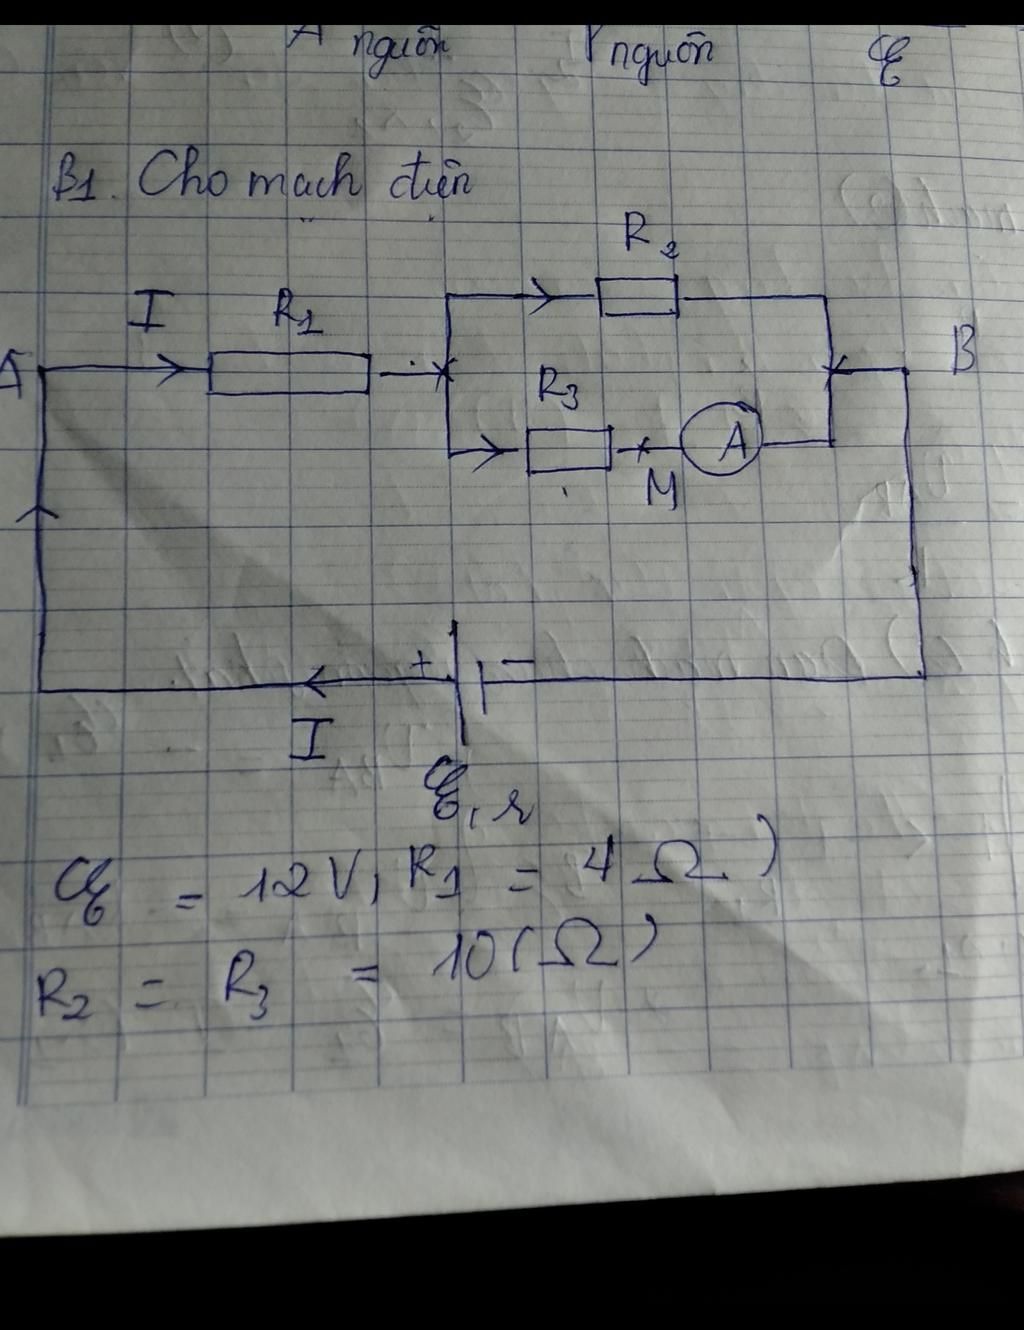 A nguồn P nguồn ξ
B1. Cho mạch điện
R2
I R1
A B
R3
A
M
+ −
I
ξ, r
ξ = 12V, R1 = 4 Ω )
R2 = R3 = 10(Ω)